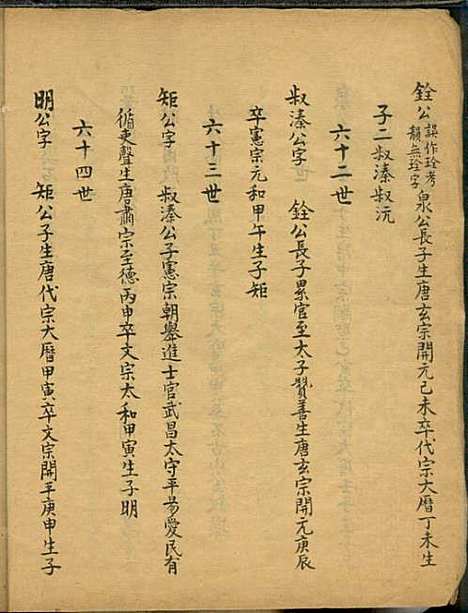 銓公誤作琀考韻無琀字泉公長子生唐玄宗開元己未卒代宗大曆丁未生
子二叔溱叔沅
六十二世
叔溱公字 銓公長子累官至太子贊善生唐玄宗開元庚辰
卒憲宗元和甲午生子矩
六十三世
矩公字 叔溱公子憲宗朝舉進士官武昌太守平昜愛民有
循吏聲生唐肅宗至德丙申卒文宗太和甲寅生子明
六十四世
明公字 矩公子生唐代宗大曆甲寅卒文宗開平庚申生子